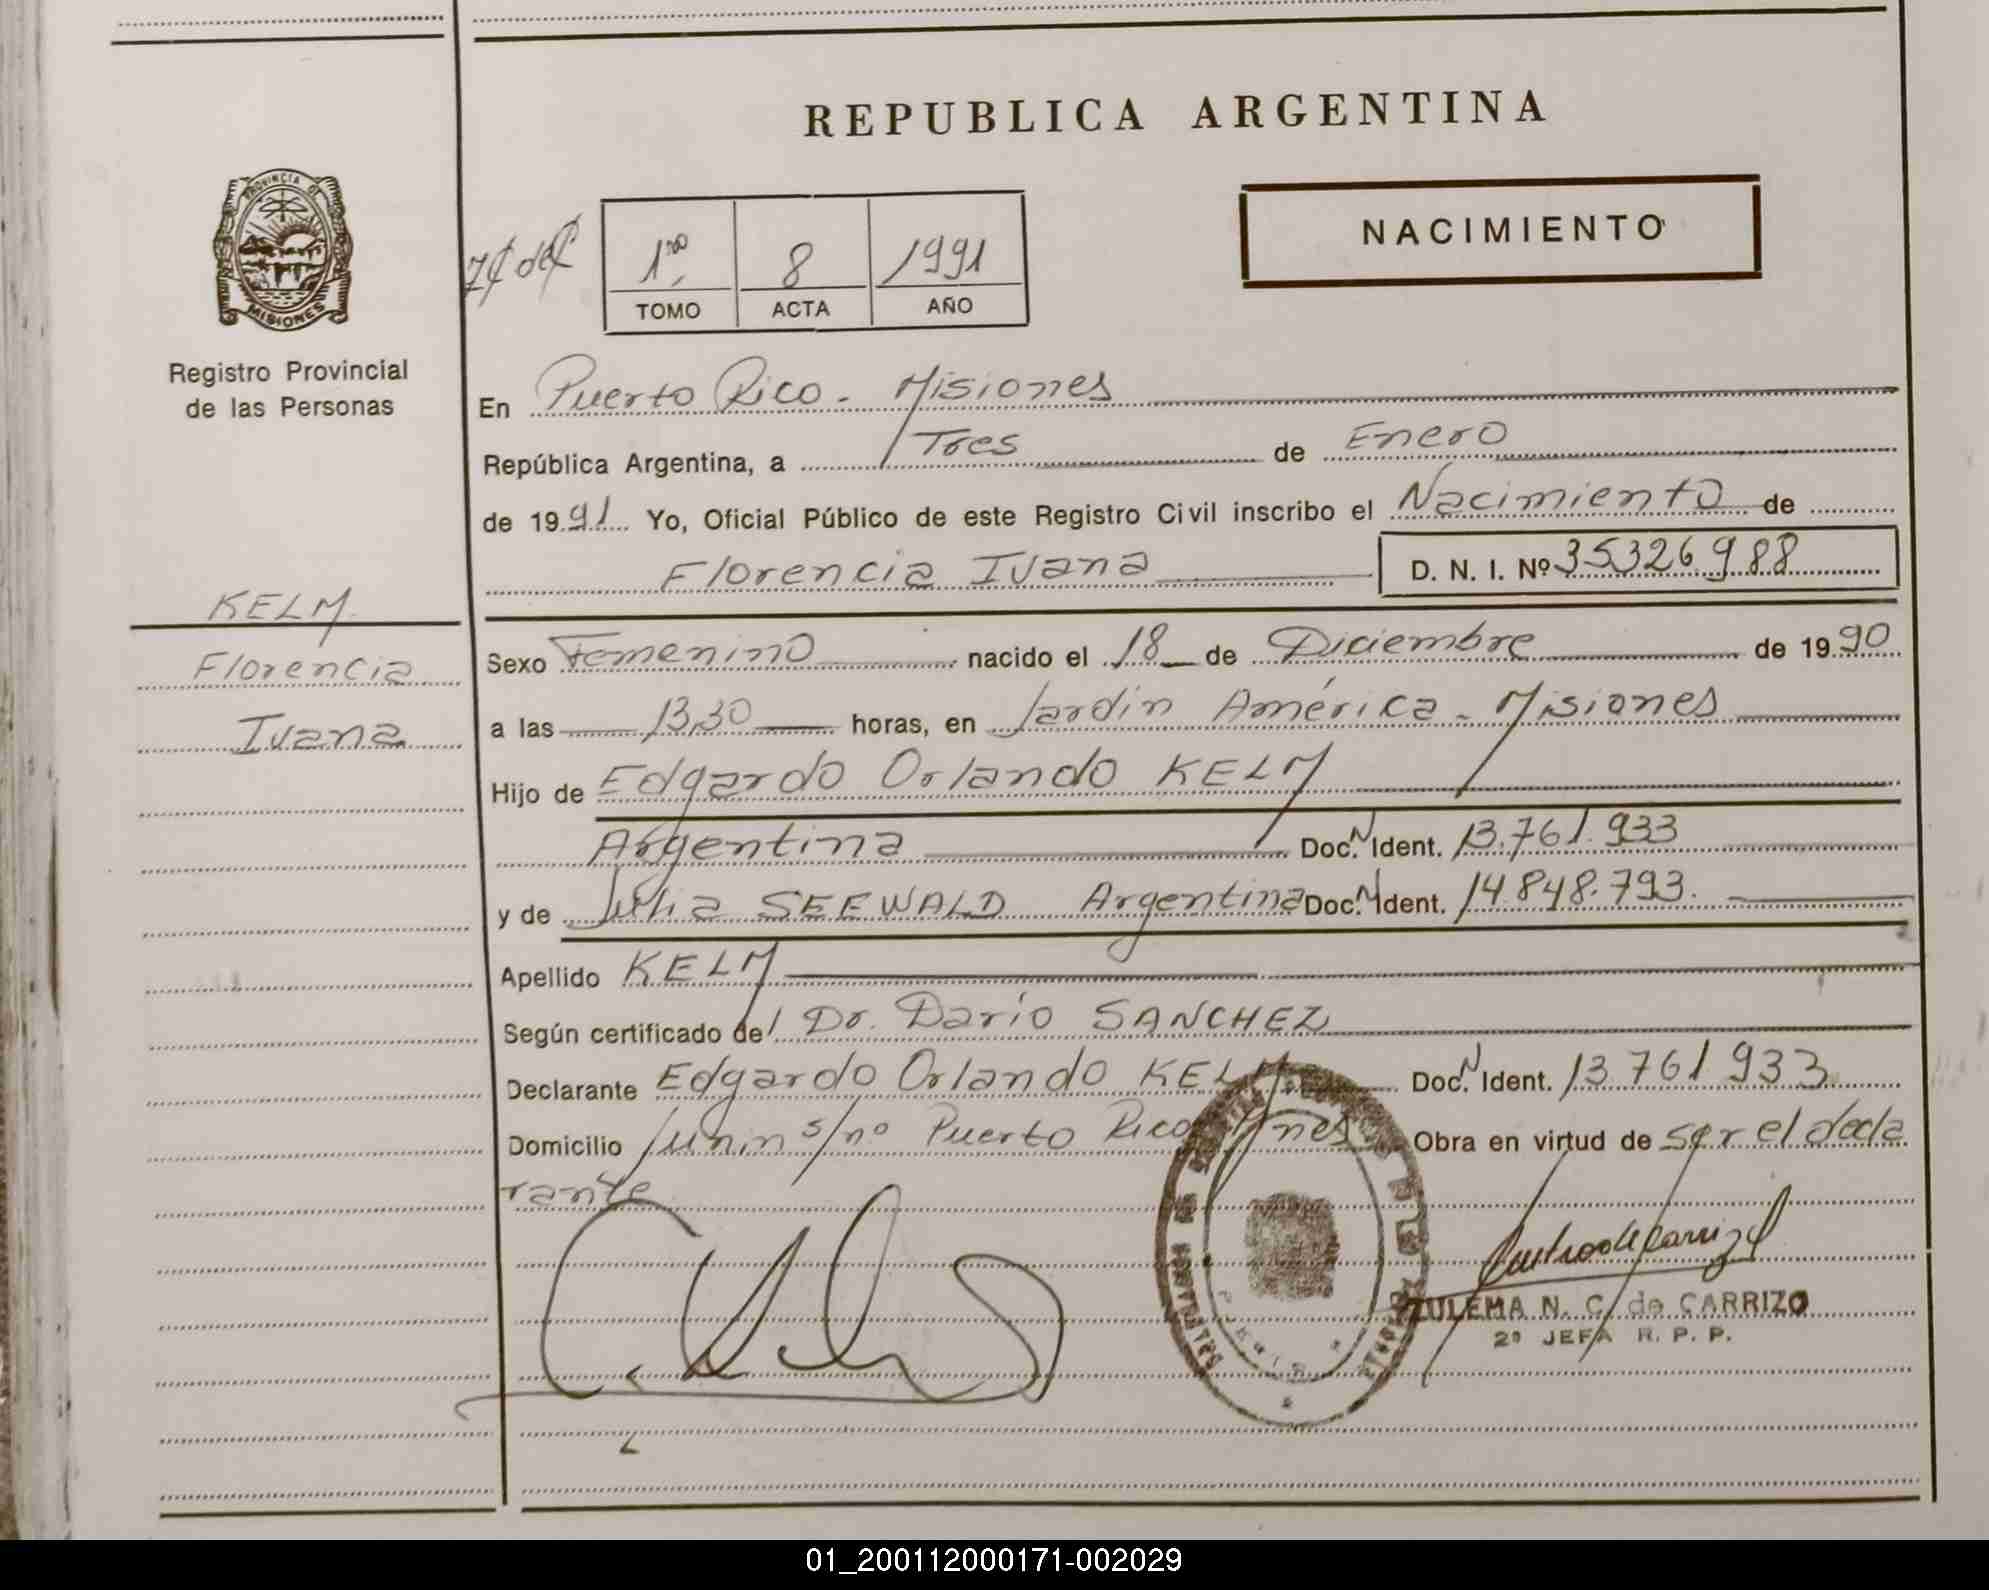 REPUBLICA ARGENTINA
PROVINCIA DE
MISIONES
Registro Provincial
de las Personas
1ro 8 1991
TOMO ACTA AÑO
NACIMIENTO
En Puerto Rico - Misiones
República Argentina, a Tres de Enero
de 1991 Yo, Oficial Público de este Registro Civil inscribo el Nacimiento de
Florencia Ivana D. N. I. Nº 35326988
KELM
Florencia
Ivana
Sexo Femenino nacido el 18 de Diciembre de 1990
a las 13,30 horas, en Jardín América - Misiones
Hijo de Edgardo Orlando KELM
Argentina Doc. N Ident. 13.761.933
y de Julia SEEWALD Argentina Doc. N Ident. 14.848.793.
Apellido KELM
Según certificado del Dr. Darío SANCHEZ
Declarante Edgardo Orlando KELM Doc. N Ident. 13 761 933
Domicilio Junín s/nº Puerto Rico Mnes Obra en virtud de ser el decla
rante
ZULEMA N. C. de CARRIZO
2ª JEFA R. P. P.
01_200112000171-002029